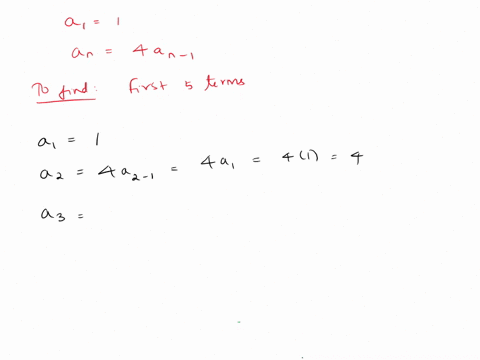 a₁ = 1
aₙ = 4aₙ₋₁
To find: first 5 terms
a₁ = 1
a₂ = 4a₂₋₁ = 4a₁ = 4(1) = 4
a₃ =